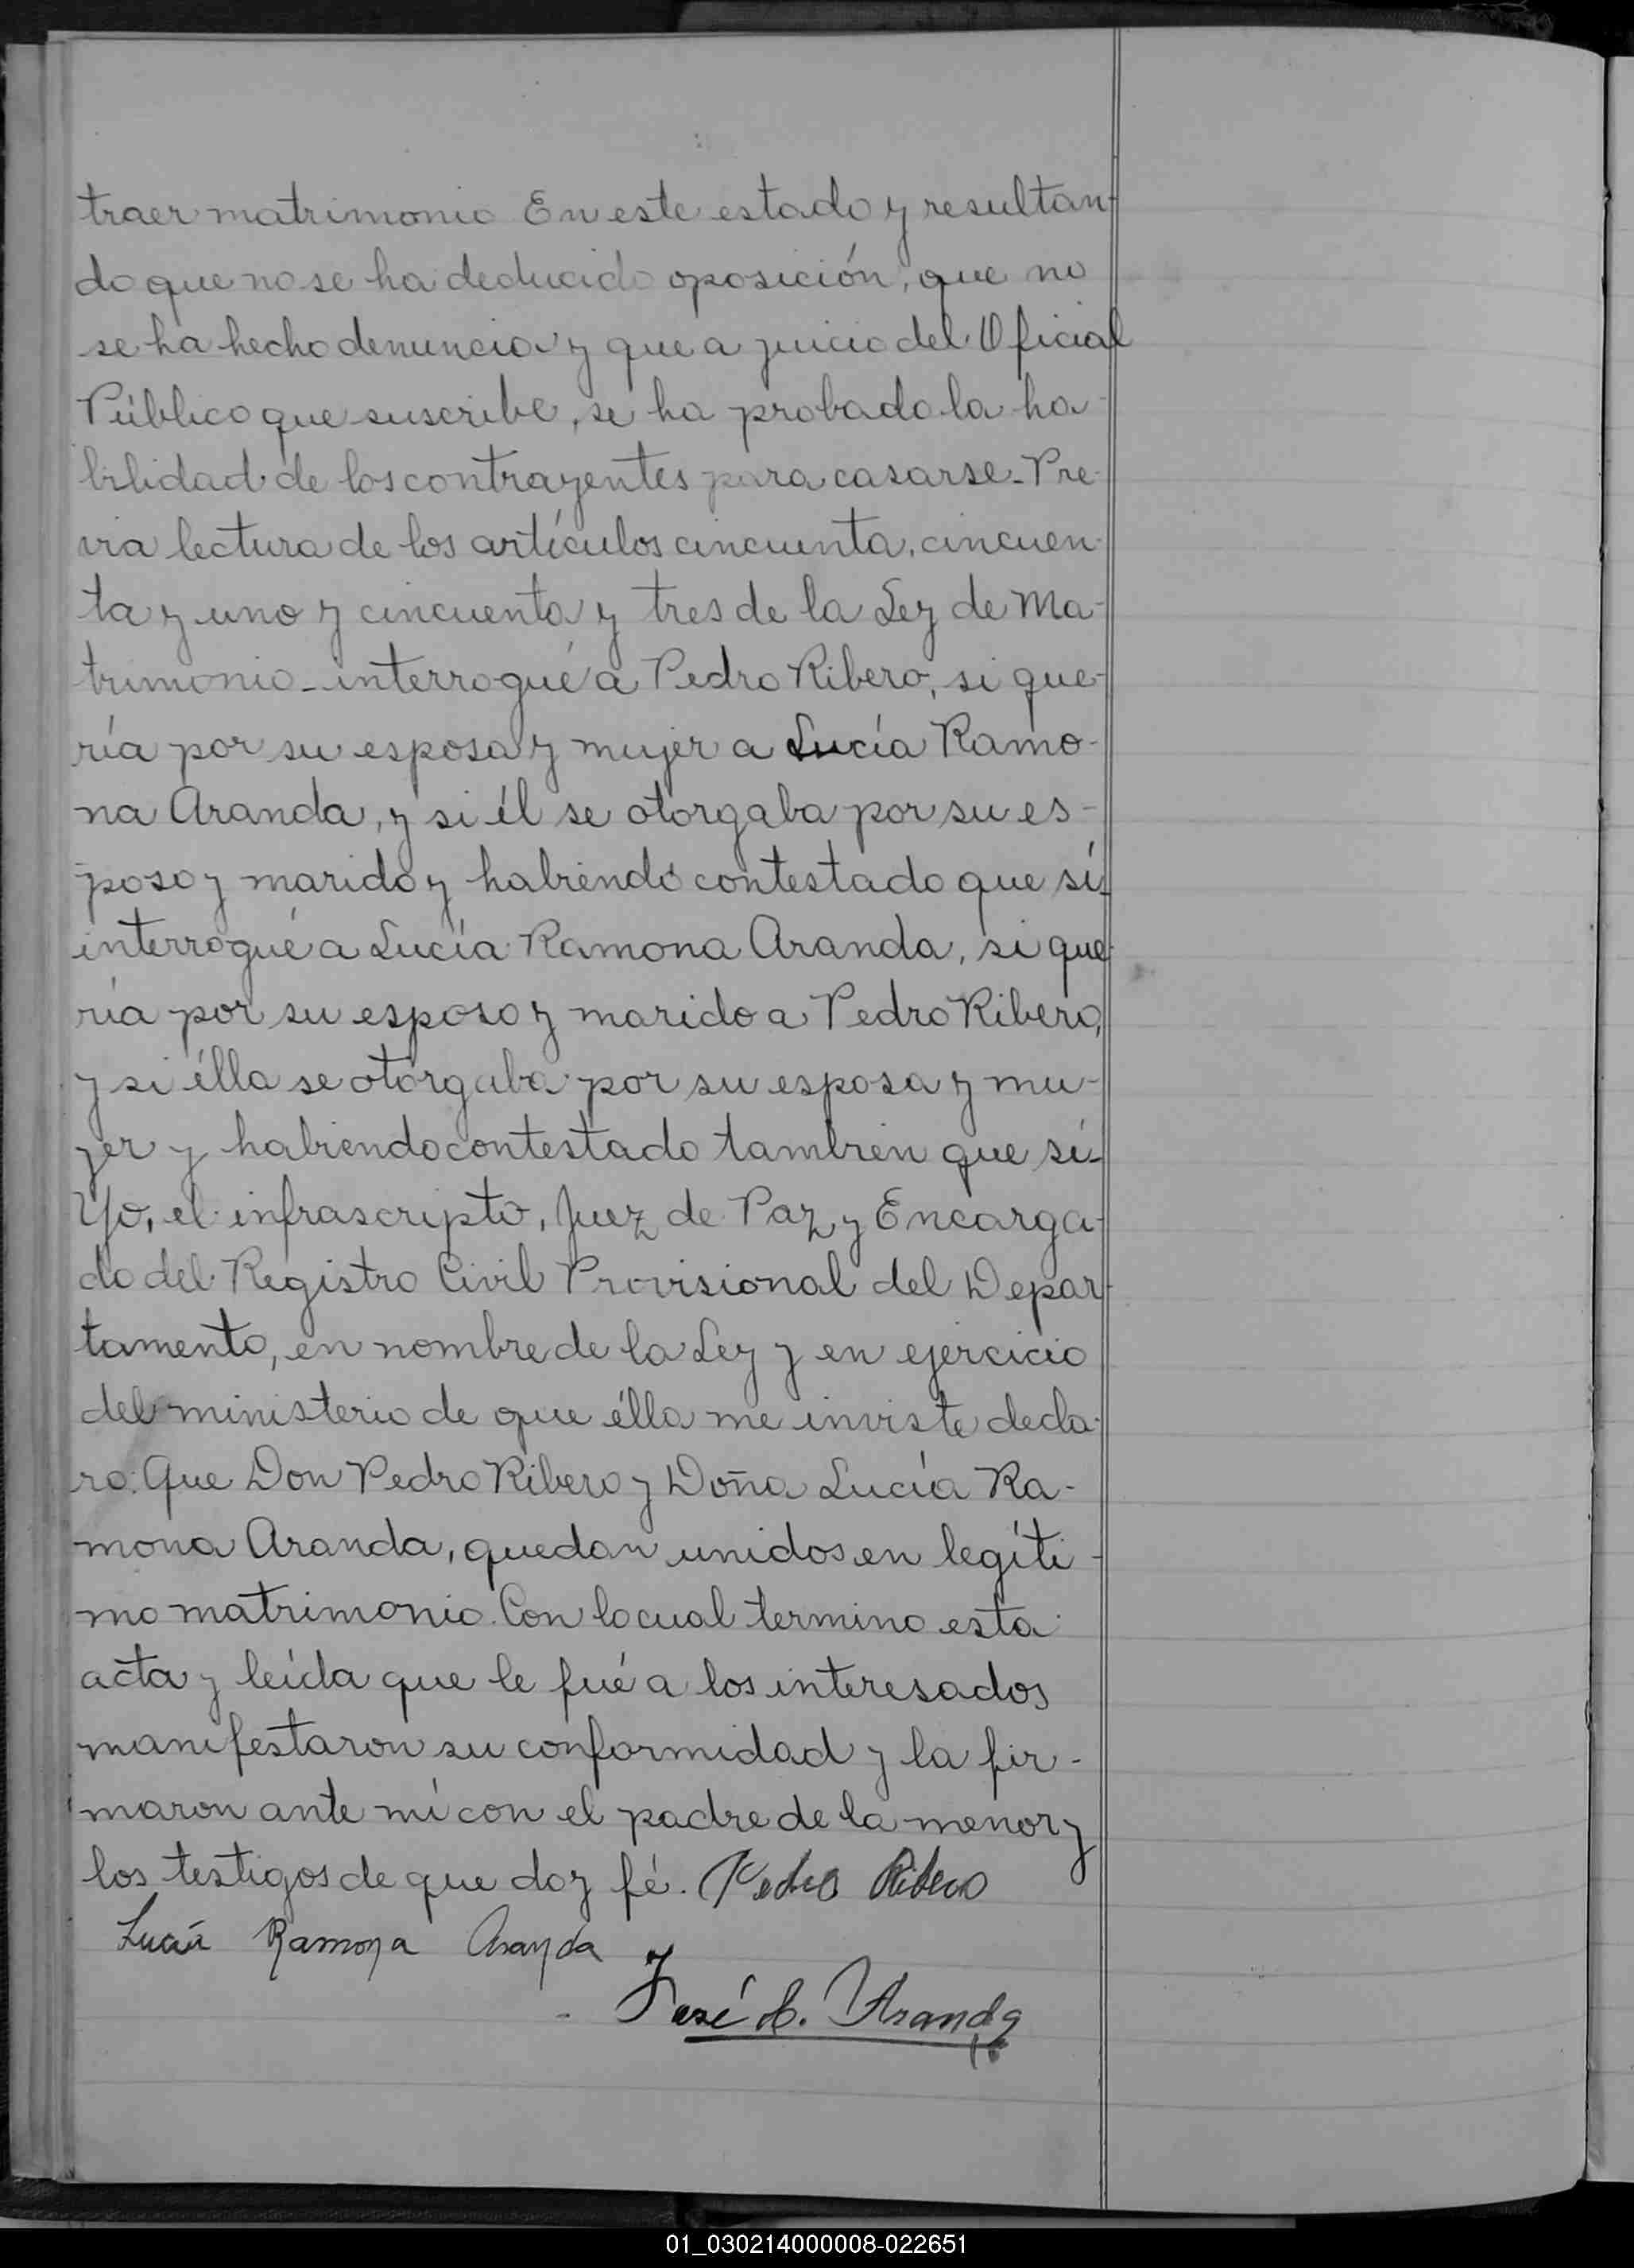 traer matrimonio En este estado y resultan-
do que no se ha deducido oposición, que no
se ha hecho denuncia y que a juicio del Oficial
Público que suscribe, se ha probado la ha-
bilidad de los contrayentes para casarse. Pre-
via lectura de los artículos cincuenta, cincuen-
ta y uno y cincuenta y tres de la Ley de Ma-
trimonio - interrogué a Pedro Ribero, si que-
ría por su esposa y mujer a Lucía Ramo-
na Aranda, y si él se otorgaba por su es-
poso y marido y habiendo contestado que sí-
interrogué a Lucía Ramona Aranda, si que-
ría por su esposo y marido a Pedro Ribero,
y si élla se otorgaba por su esposa y mu-
jer y habiendo contestado tambien que sí-
Yo, el infrascripto, Juez de Paz y Encarga-
do del Registro Civil Provisional del Depar-
tamento, en nombre de la Ley y en ejercicio
del ministerio de que élla me inviste decla-
ro: Que Don Pedro Ribero y Doña Lucía Ra-
mona Aranda, quedan unidos en legíti-
mo matrimonio. Con lo cual termino esta
acta y leída que le fué a los interesados
manifestaron su conformidad y la fir-
maron ante mí con el padre de la menor y
los testigos de que doy fé. Pedro Ribero
Lucía Ramona Aranda
José A. Aranda
01_030214000008-022651